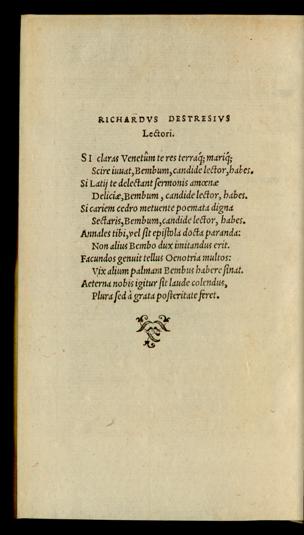 RICHARDVS DESTRESIVS
Lectori.
SI claras Venetûm te res terraq́; mariq́;
Scire iuuat, Bembum, candide lector, habes.
Si Latij te delectant sermonis amœnæ
Deliciæ, Bembum, candide lector, habes.
Si cariem cedro metuente poemata digna
Sectaris, Bembum, candide lector, habes.
Annales tibi, vel sit epistola docta paranda:
Non alius Bembo dux imitandus erit.
Facundos genuit tellus Oenotria multos:
Vix alium palmam Bembus habere sinat.
Aeterna nobis igitur sit laude colendus,
Plura sed à grata posteritate feret.